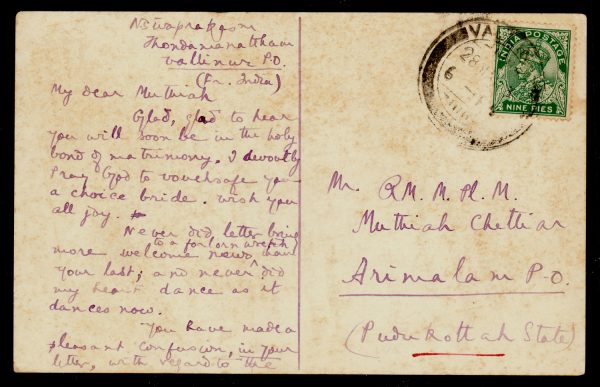 Thondamanattham
Valtinur P.O.
(Fr. India)
My dear Muthiah
Glad, glad to hear
you will soon be in the holy
bond of matrimony. I devoutly
pray God to vouchsafe you
a choice bride. wish you
all joy.
Never did letter bring
to a forlorn wretch
more welcome news than
your last; and never did
my heart dance as it
dances now.
You have made a
pleasant confusion, in your
letter, with regard to the
VA
28
INDIA POSTAGE
NINE PIES
Mr. RM. M. Pl. M.
Muthiah Chettiar
Arimalam P.O.
(Pudukottah State)